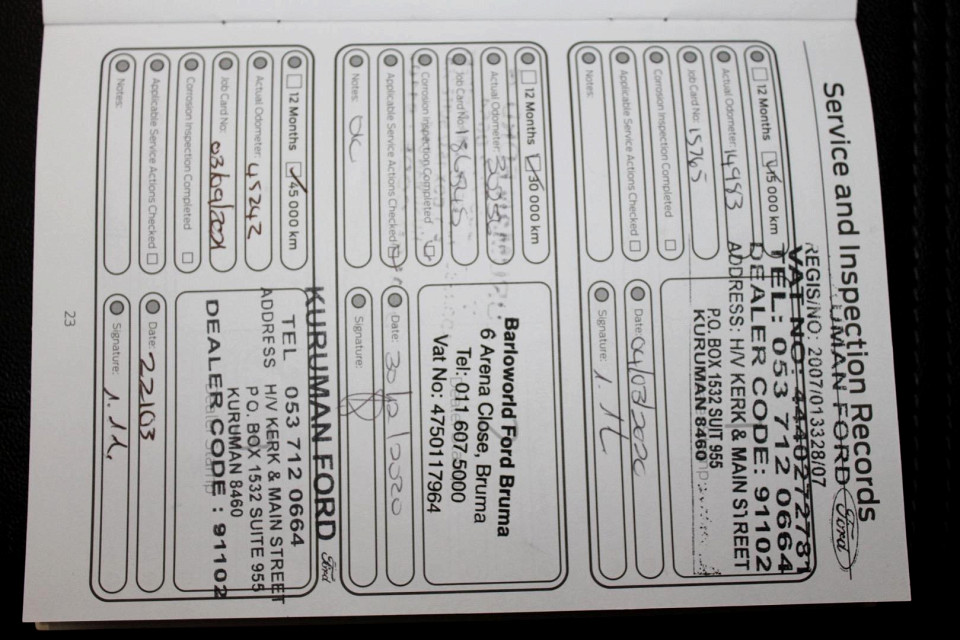 Service and Inspection Records
KURUMAN FORD Ford
REGIS/NO: 2007/013328/07
VAT NO: 4440272781
TEL: 053 712 0664
DEALER CODE: 91102
ADDRESS: H/V KERK & MAIN STREET
P.O. BOX 1532 SUIT 955
KURUMAN 8460
12 Months 15 000 km
Actual Odometer: 14983
Job Card No: 15765
Corrosion Inspection Completed
Applicable Service Actions Checked
Notes:
Date:
Signature:
12 Months 30 000 km
Actual Odometer:
Job Card No:
Corrosion Inspection Completed
Applicable Service Actions Checked
Notes: OK
Barloworld Ford Bruma
6 Arena Close, Bruma
Tel: 011 607 5000
Vat No: 4750117964
Date: 30/12/2020
Signature:
12 Months 45 000 km
Actual Odometer: 45242
Job Card No:
Corrosion Inspection Completed
Applicable Service Actions Checked
Notes:
KURUMAN FORD Ford
TEL 053 712 0664
ADDRESS H/V KERK & MAIN STREET
P.O. BOX 1532 SUITE 955
KURUMAN 8460
DEALER CODE : 91102
Dealer Stamp
Date: 22/03
Signature:
23